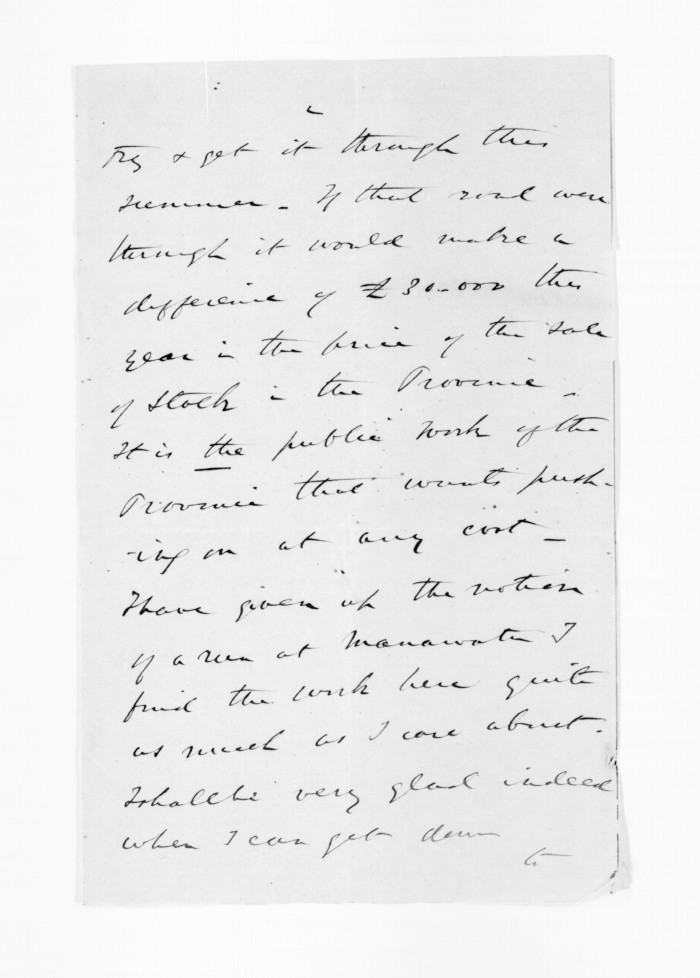 Try & get it through this
summer - If that road were
through it would make a
difference of £30.000 this
year in the price of the sale
of Stock in the Province.
It is the public work of the
Province that wants push-
-ing on at any cost -
I have given up the notion
of a run at Manawatu I
find the work here quite
as much as I care about.
I shall be very glad indeed
when I can get down
to